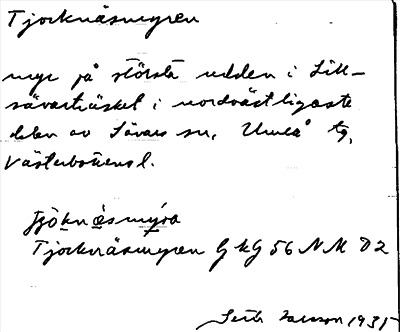 Tjocknäsmyren
myr på största udden i Lill-
sävarträsket i nordvästligaste
delen av Sävars sn, Umeå tg,
Västerbottensl.
Tjocknäsmyren GKG 56 NM D2
Seth Larsson 1935